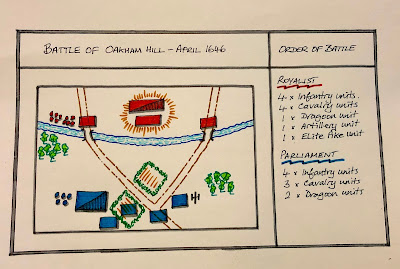 BATTLE OF OAKHAM HILL - APRIL 1646
ORDER OF BATTLE
ROYALIST
4 x Infantry units.
4 x Cavalry units
1 x Dragoon unit
1 x Artillery unit
1 x Elite Pike Unit
PARLIAMENT
4 x Infantry units
3 x Cavalry units
2 x Dragoon units